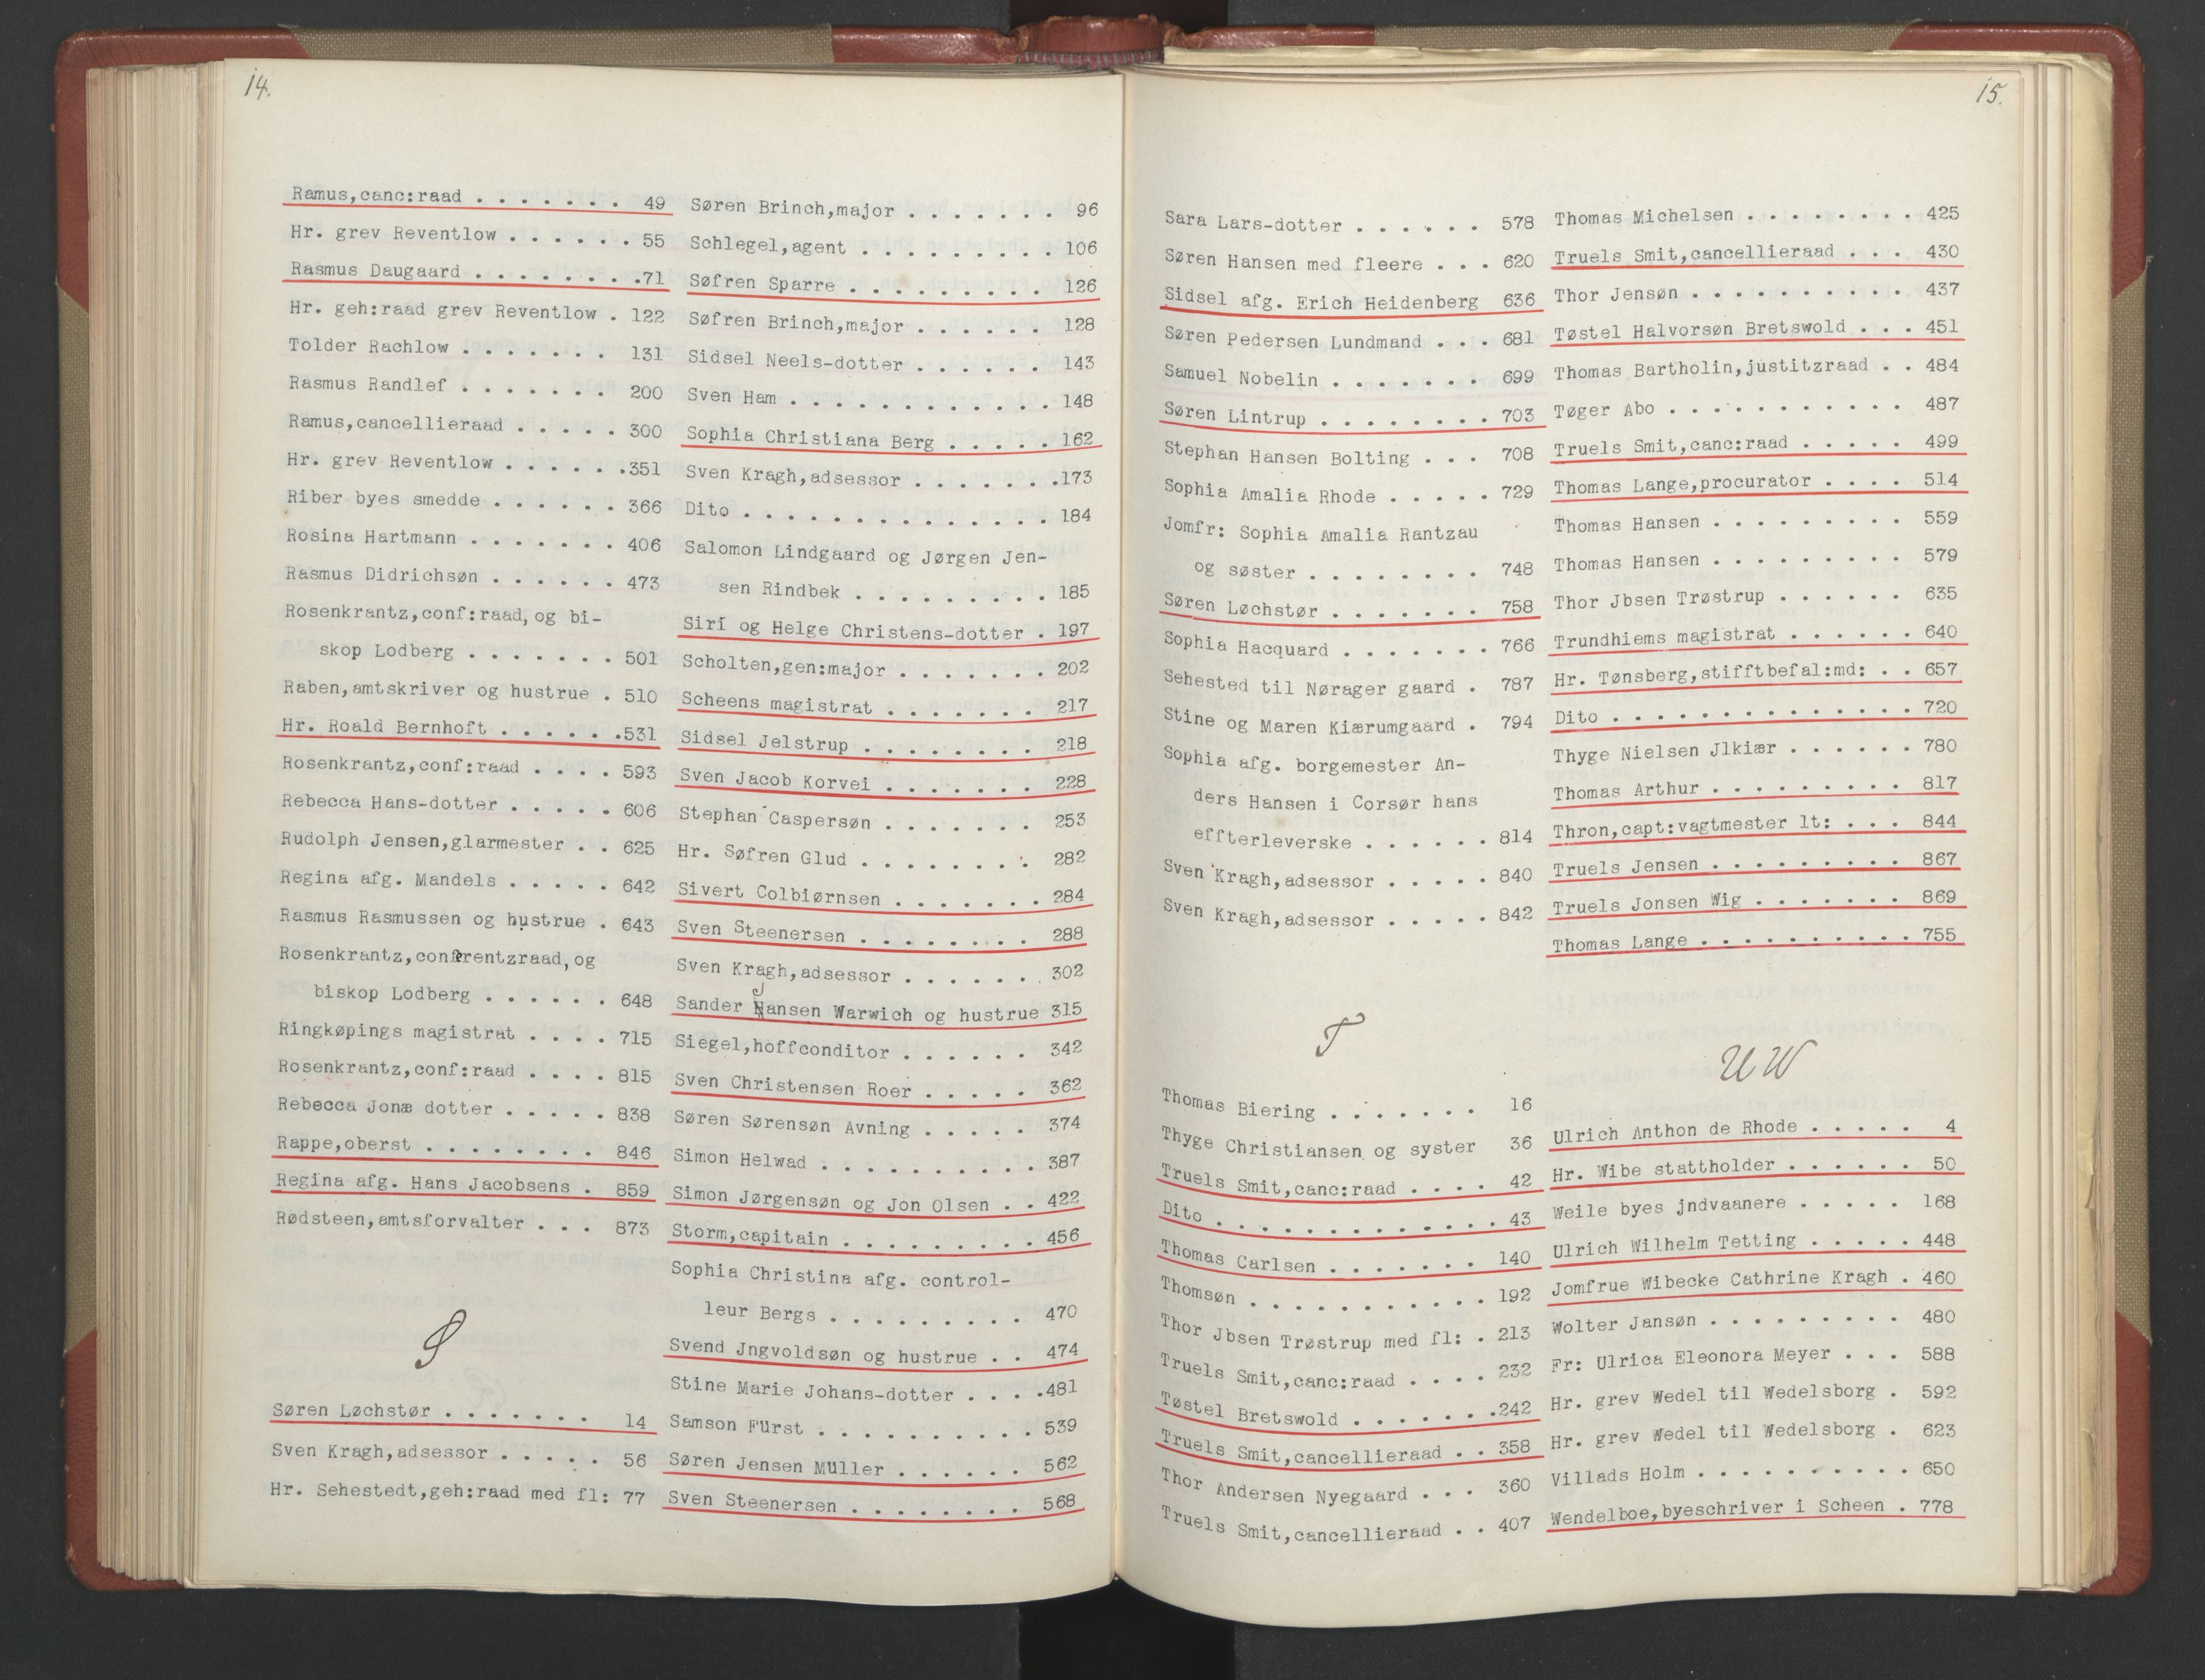 14.
Ramus,canc:raad . . . . . . . 49
Hr. grev Reventlow . . . . . . 55
Rasmus Daugaard . . . . . . . .71
Hr. geh:raad grev Reventlow . 122
Tolder Rachlow . . . . . . . 131
Rasmus Randlef . . . . . . . 200
Ramus,cancellieraad . . . . . 300
Hr. grev Reventlow . . . . . .351
Riber byes smedde . . . . . . 366
Rosina Hartmann . . . . . . . 406
Rasmus Didrichsøn . . . . . . 473
Rosenkrantz,conf:raad,og bi-
skop Lodberg . . . . . . . 501
Raben,amtskriver og hustrue . 510
Hr. Roald Bernhoft . . . . . .531
Rosenkrantz,conf:raad . . . . 593
Rebecca Hans-dotter . . . . . 606
Rudolph Jensen,glarmester . . 625
Regina afg. Mandels . . . . . 642
Rasmus Rasmussen og hustrue . 643
Rosenkrantz,conferentzraad,og
biskop Lodberg . . . . . . 648
Ringkøpings magistrat . . . . 715
Rosenkrantz,conf:raad . . . . 815
Rebecca Jonæ dotter . . . . . 838
Rappe,oberst . . . . . . . . 846
Regina afg. Hans Jacobsens . 859
Rødsteen,amtsforvalter . . . 873
S
Søren Løchstør . . . . . . . 14
Sven Kragh,adsessor . . . . . 56
Hr. Sehestedt,geh:raad med fl: 77
Søren Brinch,major . . . . . . . 96
Schlegel,agent . . . . . . . . . 106
Søfren Sparre . . . . . . . . . 126
Søfren Brinch,major . . . . . . 128
Sidsel Neels-dotter . . . . . . 143
Sven Ham . . . . . . . . . . . . 148
Sophia Christiana Berg . . . . . 162
Sven Kragh,adsessor . . . . . . .173
Dito . . . . . . . . . . . . . . 184
Salomon Lindgaard og Jørgen Jen-
sen Rindbek . . . . . . . . . 185
Siri og Helge Christens-dotter . 197
Scholten,gen:major . . . . . . . 202
Scheens magistrat . . . . . . . 217
Sidsel Jelstrup . . . . . . . . 218
Sven Jacob Korvei . . . . . . . 228
Stephan Caspersøn . . . . . . . 253
Hr. Søfren Glud . . . . . . . . 282
Sivert Colbiørnsen . . . . . . . 284
Sven Steenersen . . . . . . . . 288
Sven Kragh,adsessor . . . . . . 302
Sander Hansen Warwich og hustrue 315
Siegel,hoffconditor . . . . . . 342
Sven Christensen Roer . . . . . 362
Søren Sørensøn Avning . . . . . 374
Simon Helwad . . . . . . . . . . 387
Simon Jørgensøn og Jon Olsen . . 422
Storm,capitain . . . . . . . . . 456
Sophia Christina afg. control-
leur Bergs . . . . . . . . . 470
Svend Jngvoldsøn og hustrue . . 474
Stine Marie Johans-dotter . . . .481
Samson Fürst . . . . . . . . . . 539
Søren Jensen Müller . . . . . . 562
Sven Steenersen . . . . . . . . 568
15.
Sara Lars-dotter . . . . . . 578
Søren Hansen med fleere . . . 620
Sidsel afg. Erich Heidenberg 636
Søren Pedersen Lundmand . . . 681
Samuel Nobelin . . . . . . . 699
Søren Lintrup . . . . . . . . 703
Stephan Hansen Bolting . . . 708
Sophia Amalia Rhode . . . . . 729
Jomfr: Sophia Amalia Rantzau
og søster . . . . . . . . 748
Søren Løchstør . . . . . . . 758
Sophia Hacquard . . . . . . . 766
Sehested til Nørager gaard . 787
Stine og Maren Kiærumgaard . 794
Sophia afg. borgemester An-
ders Hansen i Corsør hans
effterleverske . . . . . . 814
Sven Kragh,adsessor . . . . . 840
Sven Kragh,adsessor . . . . . 842
T
Thomas Biering . . . . . . . 16
Thyge Christiansen og syster 36
Truels Smit,canc:raad . . . . 42
Dito . . . . . . . . . . . . . 43
Thomas Carlsen . . . . . . . 140
Thomsøn . . . . . . . . . . . 192
Thor Jbsen Trøstrup med fl: . 213
Truels Smit,canc:raad . . . . 232
Tøstel Bretswold . . . . . . .242
Truels Smit,cancellieraad . . 358
Thor Andersen Nyegaard . . . 360
Truels Smit,cancellieraad . . 407
Thomas Michelsen . . . . . . . . . 425
Truels Smit,cancellieraad . . . 430
Thor Jensøn . . . . . . . . . . . 437
Tøstel Halvorsøn Bretswold . . . 451
Thomas Bartholin,justitzraad . . 484
Tøger Abo . . . . . . . . . . . 487
Truels Smit,canc:raad . . . . . 499
Thomas Lange,procurator . . . . 514
Thomas Hansen . . . . . . . . . 559
Thomas Hansen . . . . . . . . . 579
Thor Jbsen Trøstrup . . . . . . 635
Trundhiems magistrat . . . . . . 640
Hr. Tønsberg,stifftbefal:md: . . 657
Dito . . . . . . . . . . . . . . 720
Thyge Nielsen Jlkiær . . . . . . 780
Thomas Arthur . . . . . . . . . 817
Thron,capt:vagtmester lt: . . . 844
Truels Jensen . . . . . . . . . 867
Truels Jonsen Wig . . . . . . . 869
Thomas Lange . . . . . . . . . . 755
U W
Ulrich Anthon de Rhode . . . . . 4
Hr. Wibe stattholder . . . . . . 50
Weile byes jndvaanere . . . . . 168
Ulrich Wilhelm Tetting . . . . . 448
Jomfrue Wibecke Cathrine Kragh . 460
Wolter Jansøn . . . . . . . . . 480
Fr: Ulrica Eleonora Meyer . . . 588
Hr. grev Wedel til Wedelsborg . 592
Hr. grev Wedel til Wedelsborg . 623
Villads Holm . . . . . . . . . . 650
Wendelboe,byeschriver i Scheen . 778